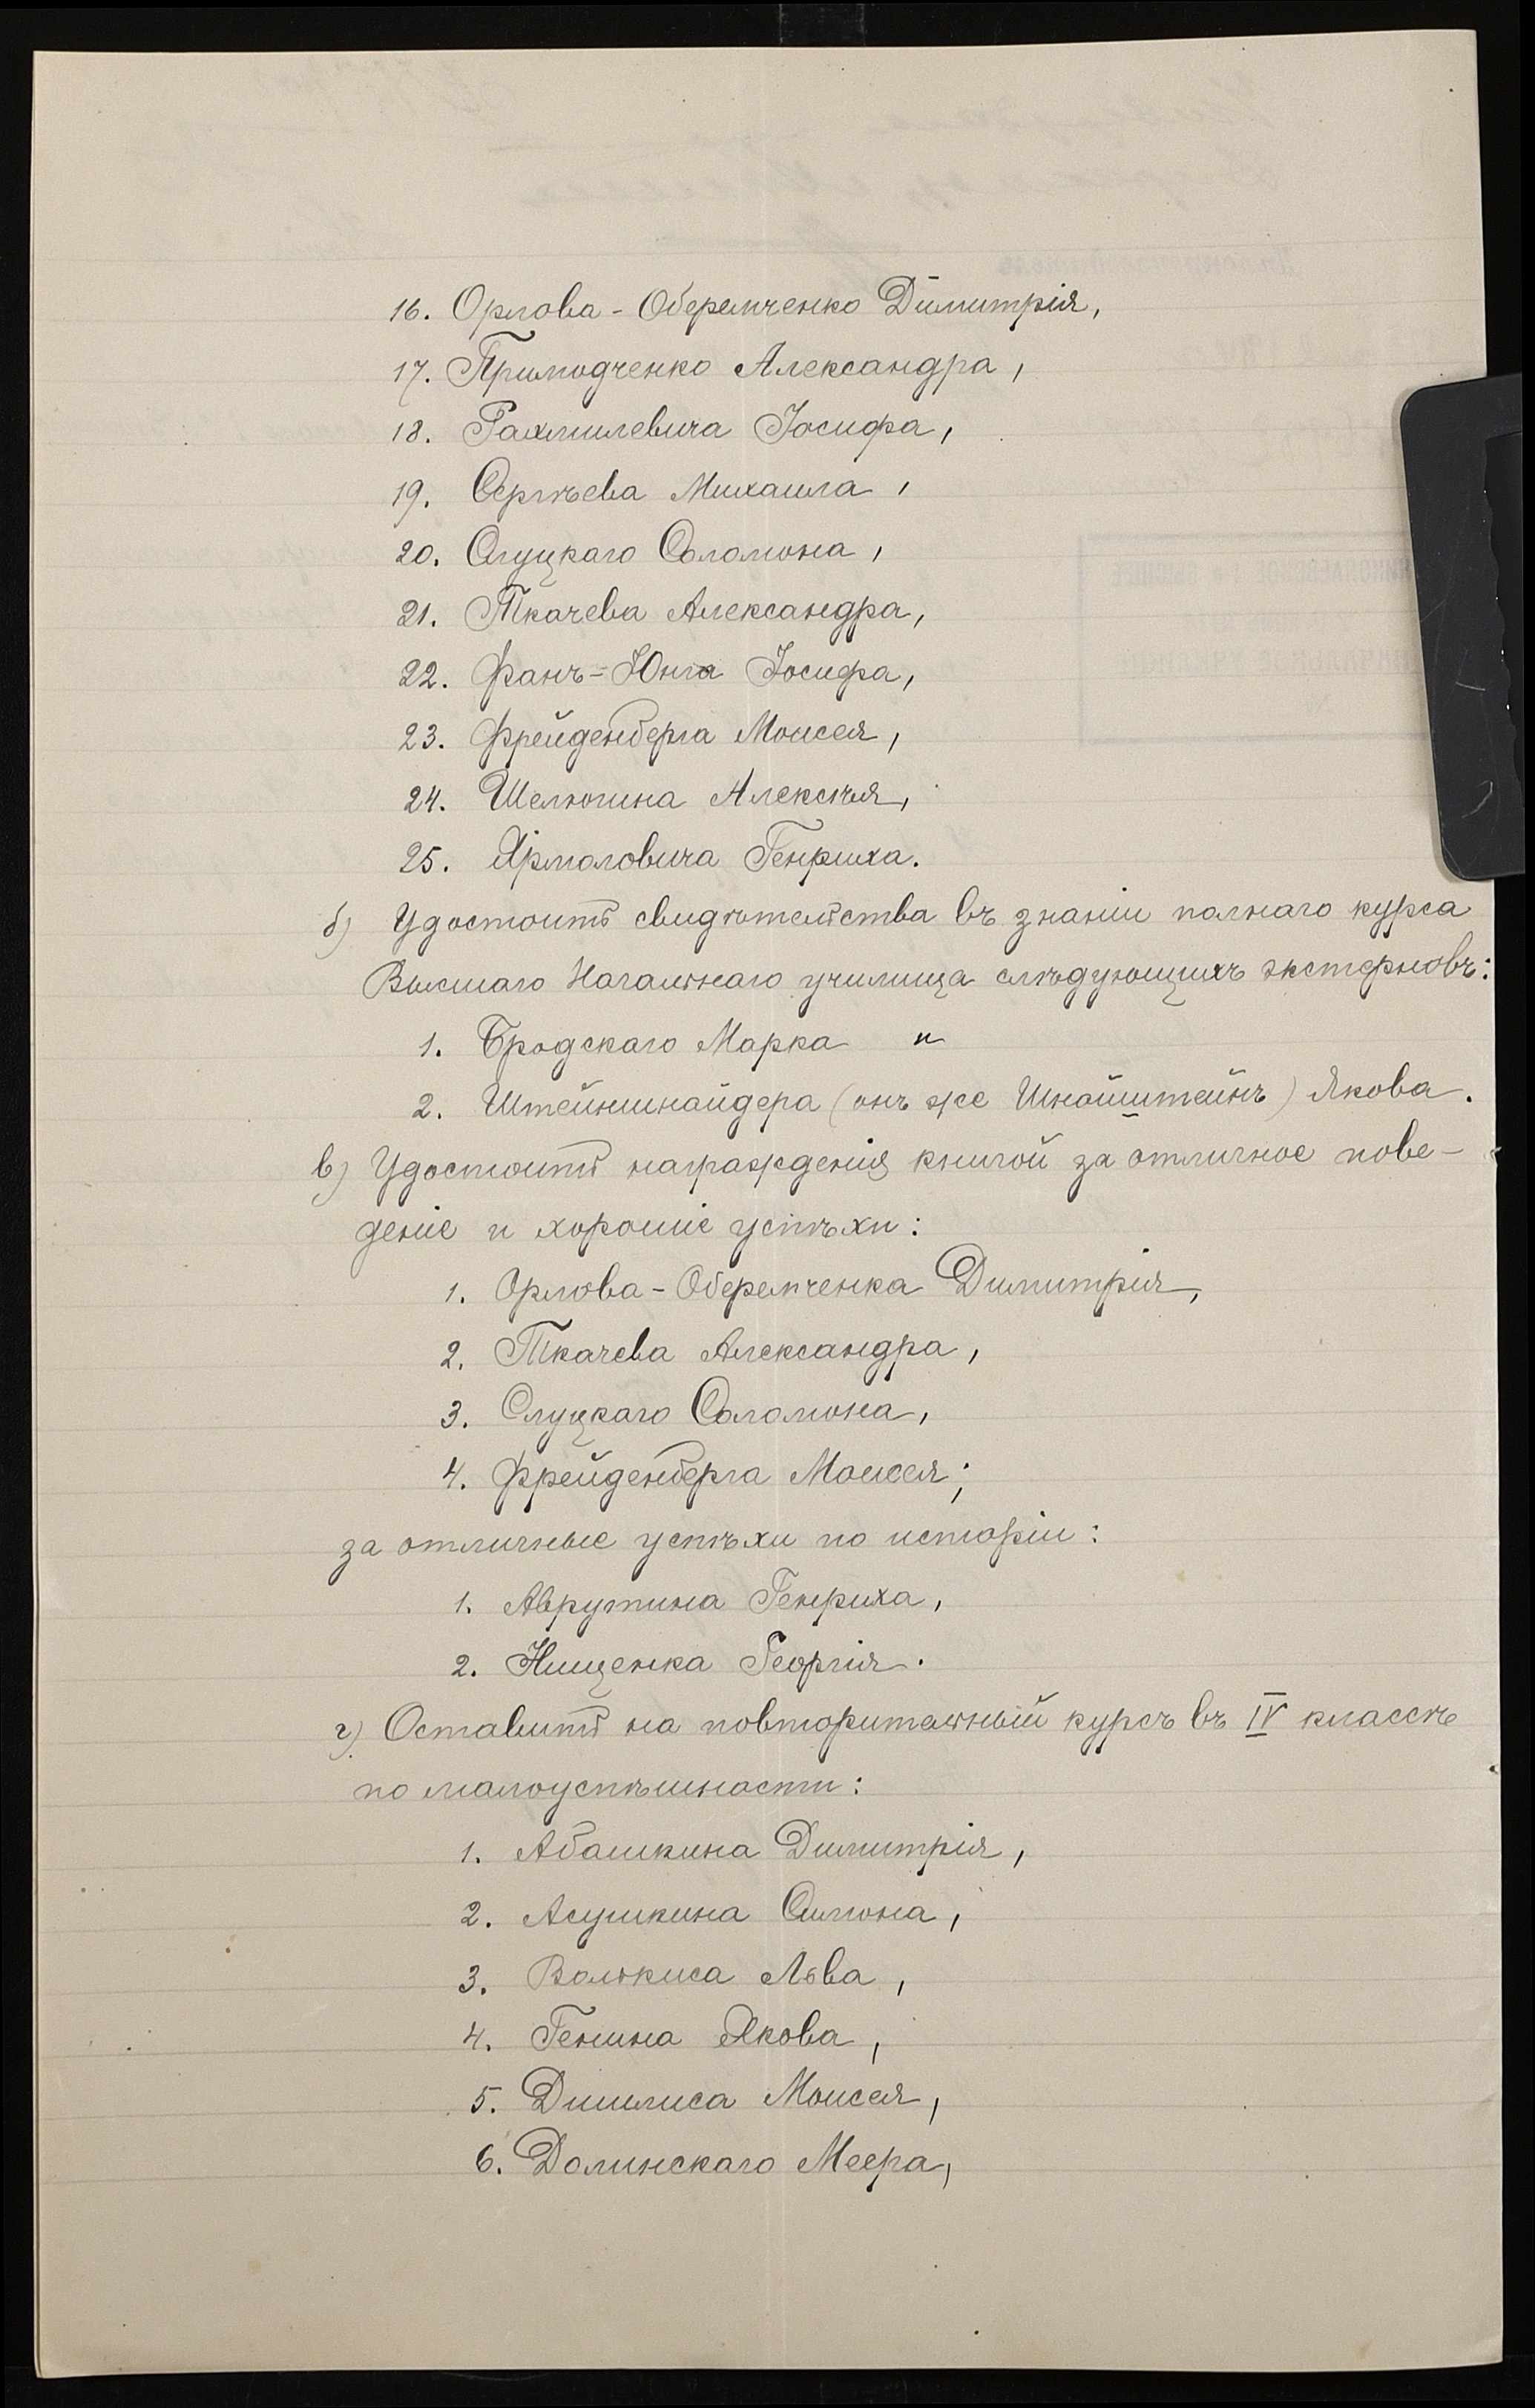 16. Орлова-Оберемченко Димитрія,
17. Примодченко Александра,
18. Рахмилевича Іосифа,
19. Сергѣева Михаила,
20. Слуцкаго Соломона,
21. Ткачева Александра,
22. Фанъ-Юнга Іосифа,
23. Фрейденберга Моисея,
24. Шелюгина Алексѣя,
25. Ярмоловича Генриха.
б) Удостоить свидѣтельства въ знаніи полнаго курса
Высшаго Начальнаго училища слѣдующихъ экстерновъ:
1. Бродскаго Марка и
2. Штейншнайдера (онъ же Шнайштейнъ) Якова.
в) Удостоить награжденія книгой за отличное пове-
деніе и хорошіе успѣхи:
1. Орлова-Оберемченка Димитрія,
2. Ткачева Александра,
3. Слуцкаго Соломона,
4. Фрейденберга Моисея;
за отличные успѣхи по исторіи:
1. Аврутина Генриха,
2. Нищенка Георгія.
г) Оставить на повторительный курсъ въ IV классѣ
по малоуспѣшности:
1. Абашкина Димитрія,
2. Асушкина Симона,
3. Волькиса Льва,
4. Генина Якова,
5. Моисея,
6. Долинскаго Меера,